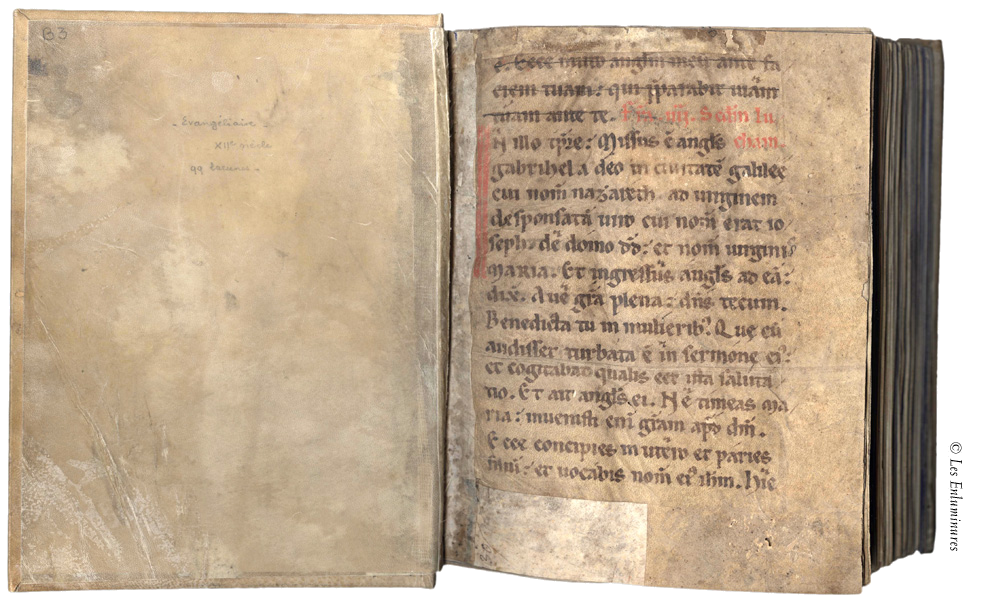 B3
- Évangéliaire -
XIIe siècle
99 lacunes -
e. Ecce mitto anglm meu ante fa
ciem tuam: qui p̄parabit uiam̄
tuam ante te. iiij. Sedm lu
N illo tp̄re: Missus ē angl̄s cham.
gabrihel a deo in ciuitatē galileę
cui nom̄ nazareth. ad uirginem
desponsatā uiro cui nom̄ erat io
seph: dē domo dd̄: et nom̄ uirgini
MARIA. Et ingressus angl̄s ad eā:
dix̄. Aue gr̄a plena: dn̄s tecum.
Benedicta tu in mulierib'. Que cū
audisset turbata ē in sermone ei':
et cogitabat qualis eēt ista saluta
tio. Et ait angl̄s ei. Ne timeas ma
ria: inuenisti eni gr̄am apd dm̄.
Ecce concipies in utero et paries
filiū: et uocabis nom̄ ei' ihm̄. Hic
© Les Enluminures